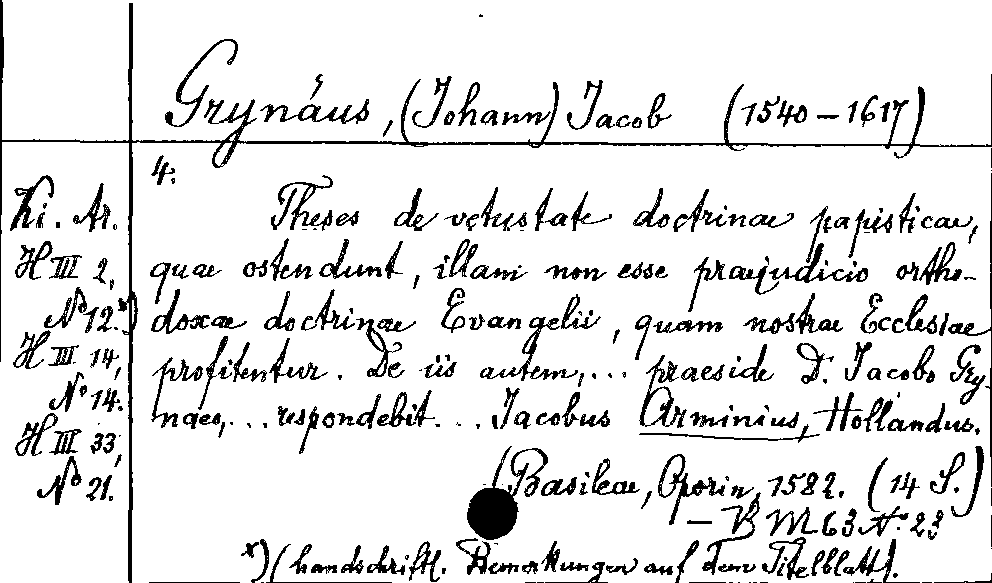 Grynäus, (Johann) Jacob (1540–1617)
4.
Ki. Ar.
H III 2,
No 12.*)
H III 14,
No 14.
H III 33,
No 21.
Theses de vetustate doctrinae papisticae,
quae ostendunt, illam non esse praejudicio ortho-
doxae doctrinae Evangelii, quam nostrae Ecclesiae
profitentur. De iis autem,... praeside D. Jacobo Gry-
naeo,... respondebit... Jacobus Arminius, Hollandus.
(Basileae, Oporin, 1582. (14 S.)
– B M 63 No. 23
*) (handschriftl. Bemerkungen auf dem Titelblatt).